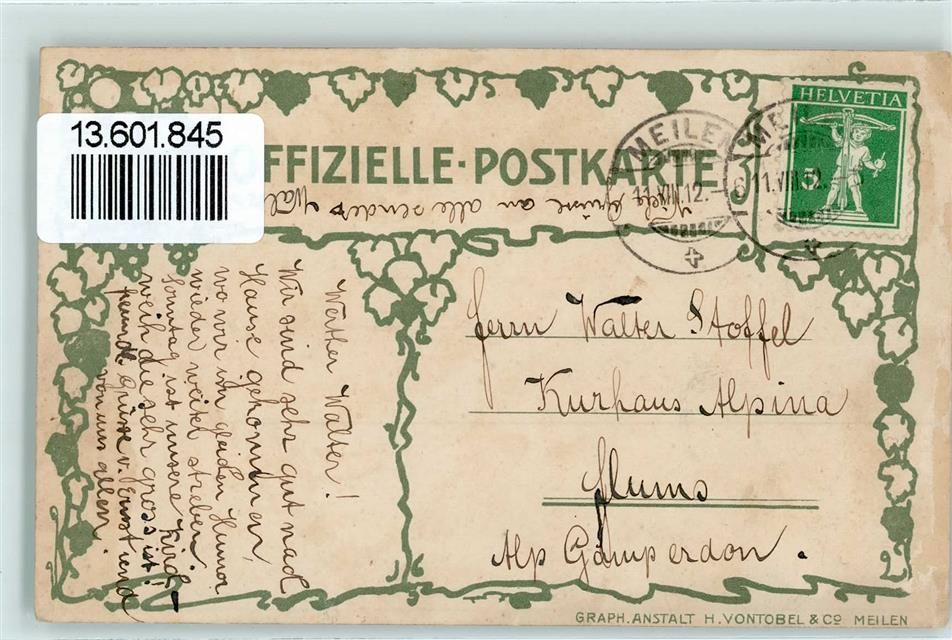 13.601.845
FFIZIELLE-POSTKARTE
HELVETIA
5
MEILEN
11.VIII.12.
MEI
11.VIII.12
Viele Grüsse an alle sendet Wal
Werther Walter!
Wir sind sehr gut nach
Hause gekommen,
wo wir im gleichen Humor
wieder weiter streben.
Sonntag ist unsere Kirch-
weih die sehr gross ist!
freundl. Grüsse v. Ernst und
von uns allen.
Herrn Walter Stoffel
Kurhaus Alpina
Flums
Alp Gamperdon.
GRAPH. ANSTALT H. VONTOBEL & Co MEILEN